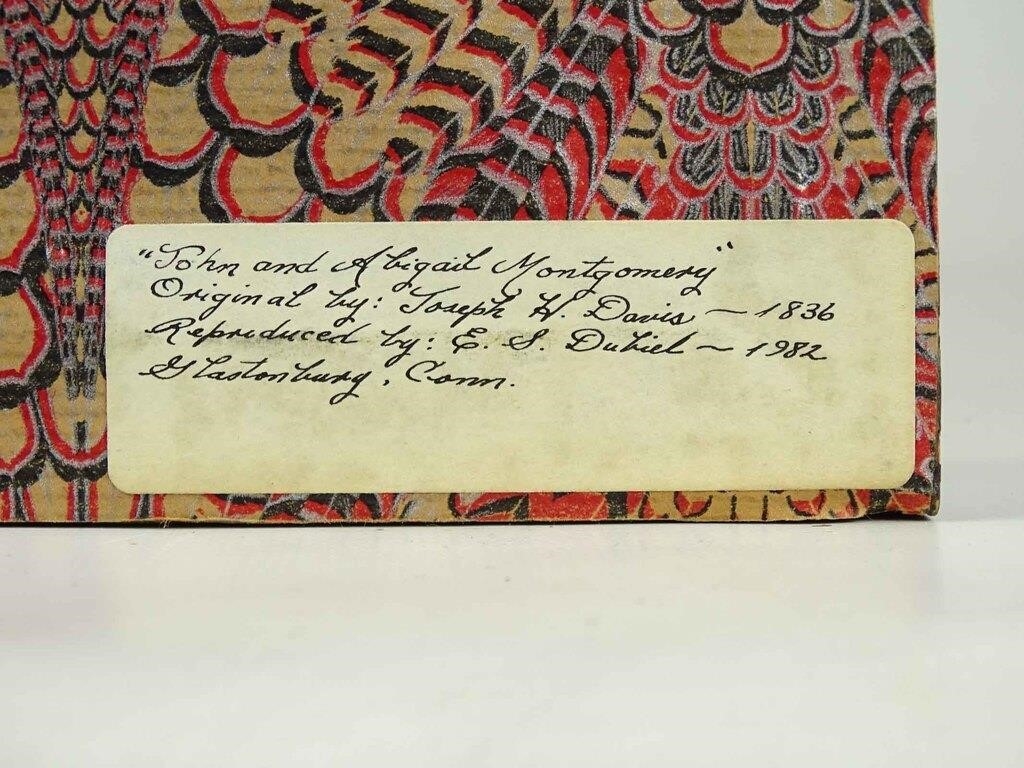 "John and Abigail Montgomery"
Original by: Joseph H. Davis ~ 1836
Reproduced by: E. S. Dubiel ~ 1982
Glastonbury, Conn.